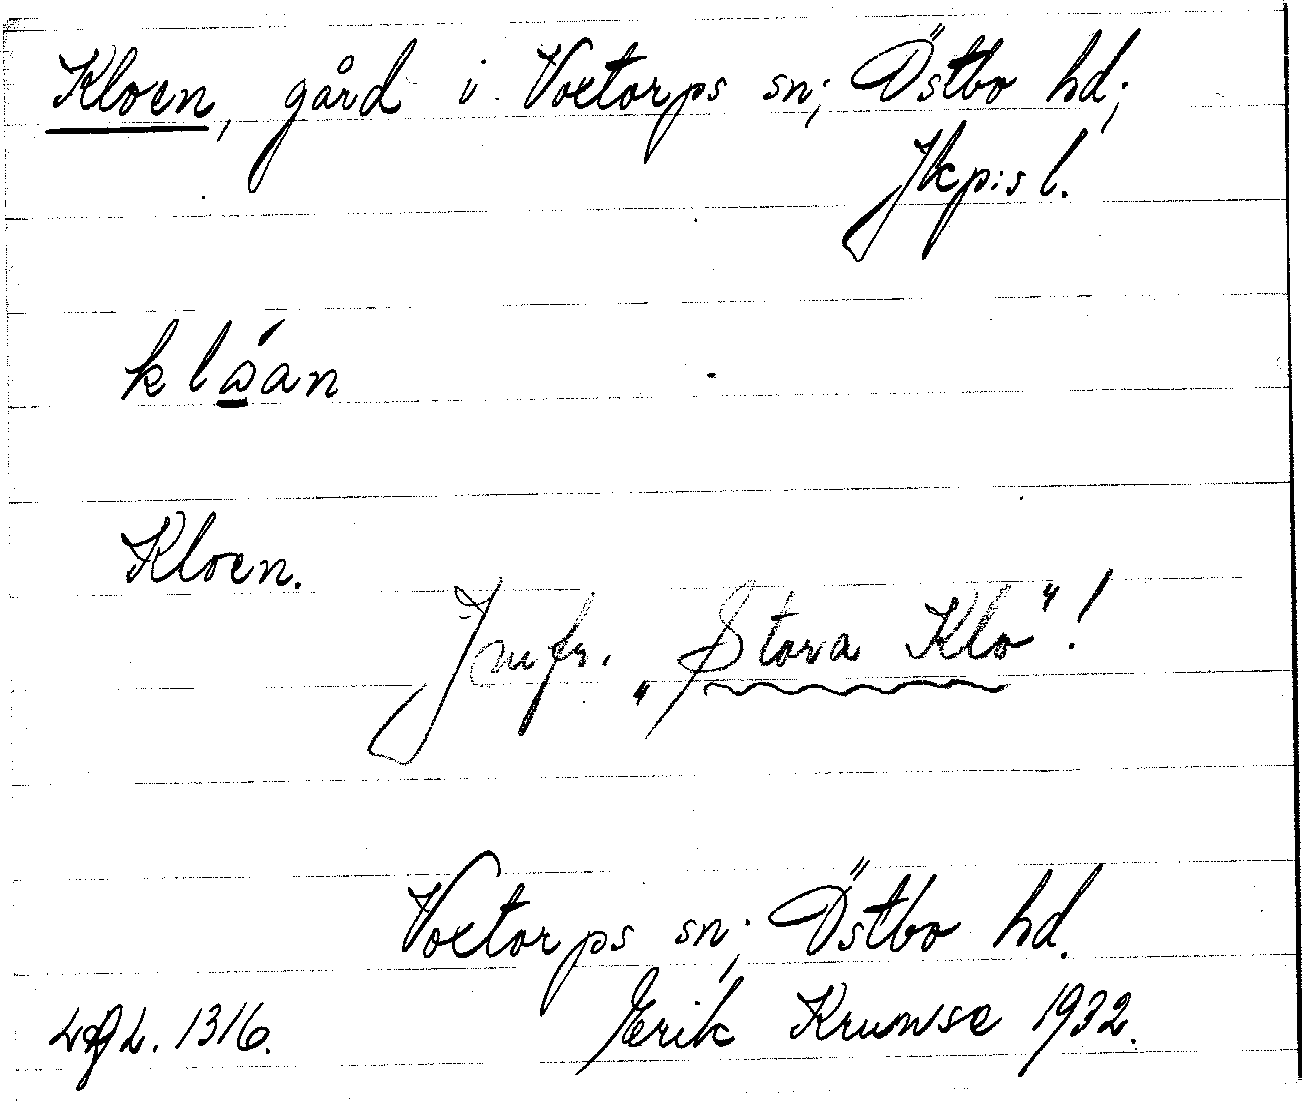 Kloen, gård i Voxtorps sn; Östbo hd;
Jkp:s l.
klåan
Kloen.
Jmfr. „Stora Klo"!
Voxtorps sn; Östbo hd.
Erik Krumse 1932.
1316.